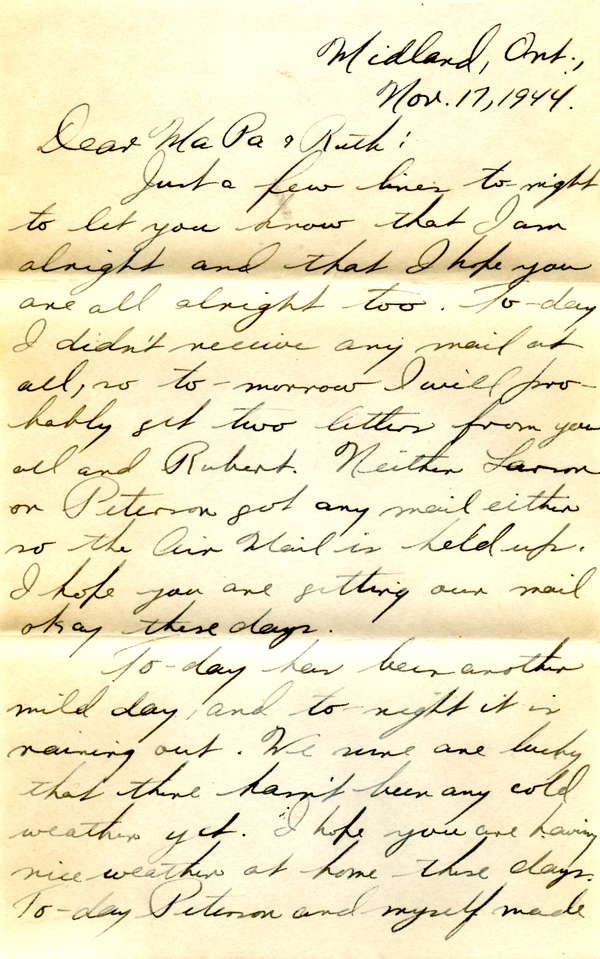 Midland, Ont.,
Nov. 17, 1944.
Dear Ma Pa & Ruth:
Just a few lines to-night
to let you know that I am
alright and that I hope you
are all alright too. To-day
I didn't receive any mail at
all, so to-morrow I will pro-
bably get two letters from you
all and Robert. Neither Larson
or Peterson got any mail either
so the Air Mail is held up.
I hope you are getting our mail
okay these days.
To-day has been another
mild day, and to-night it is
raining out. We sure are lucky
that there hasn't been any cold
weather yet. I hope you are having
nice weather at home these days.
To-day Peterson and myself made